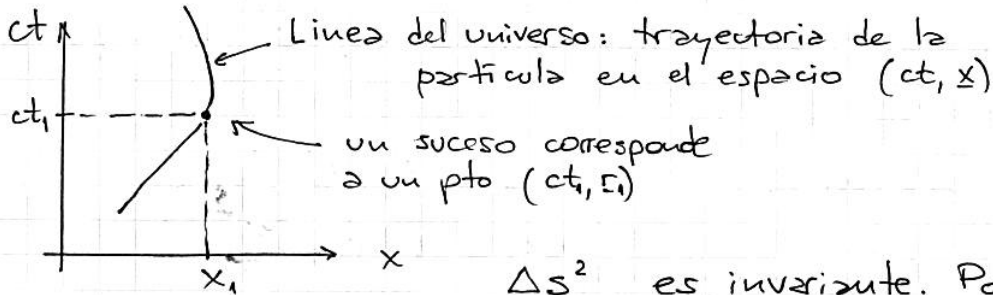 ct
Linea del universo: trayectoria de la
partícula en el espacio (ct, x)
ct₁
un suceso corresponde
a un pto (ct₁, r₁)
x₁
x
Δs² es invariante. Po